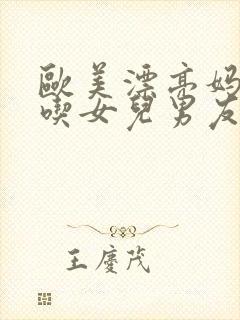 歐美漂亮媽
喫女兒男友
王慶茂